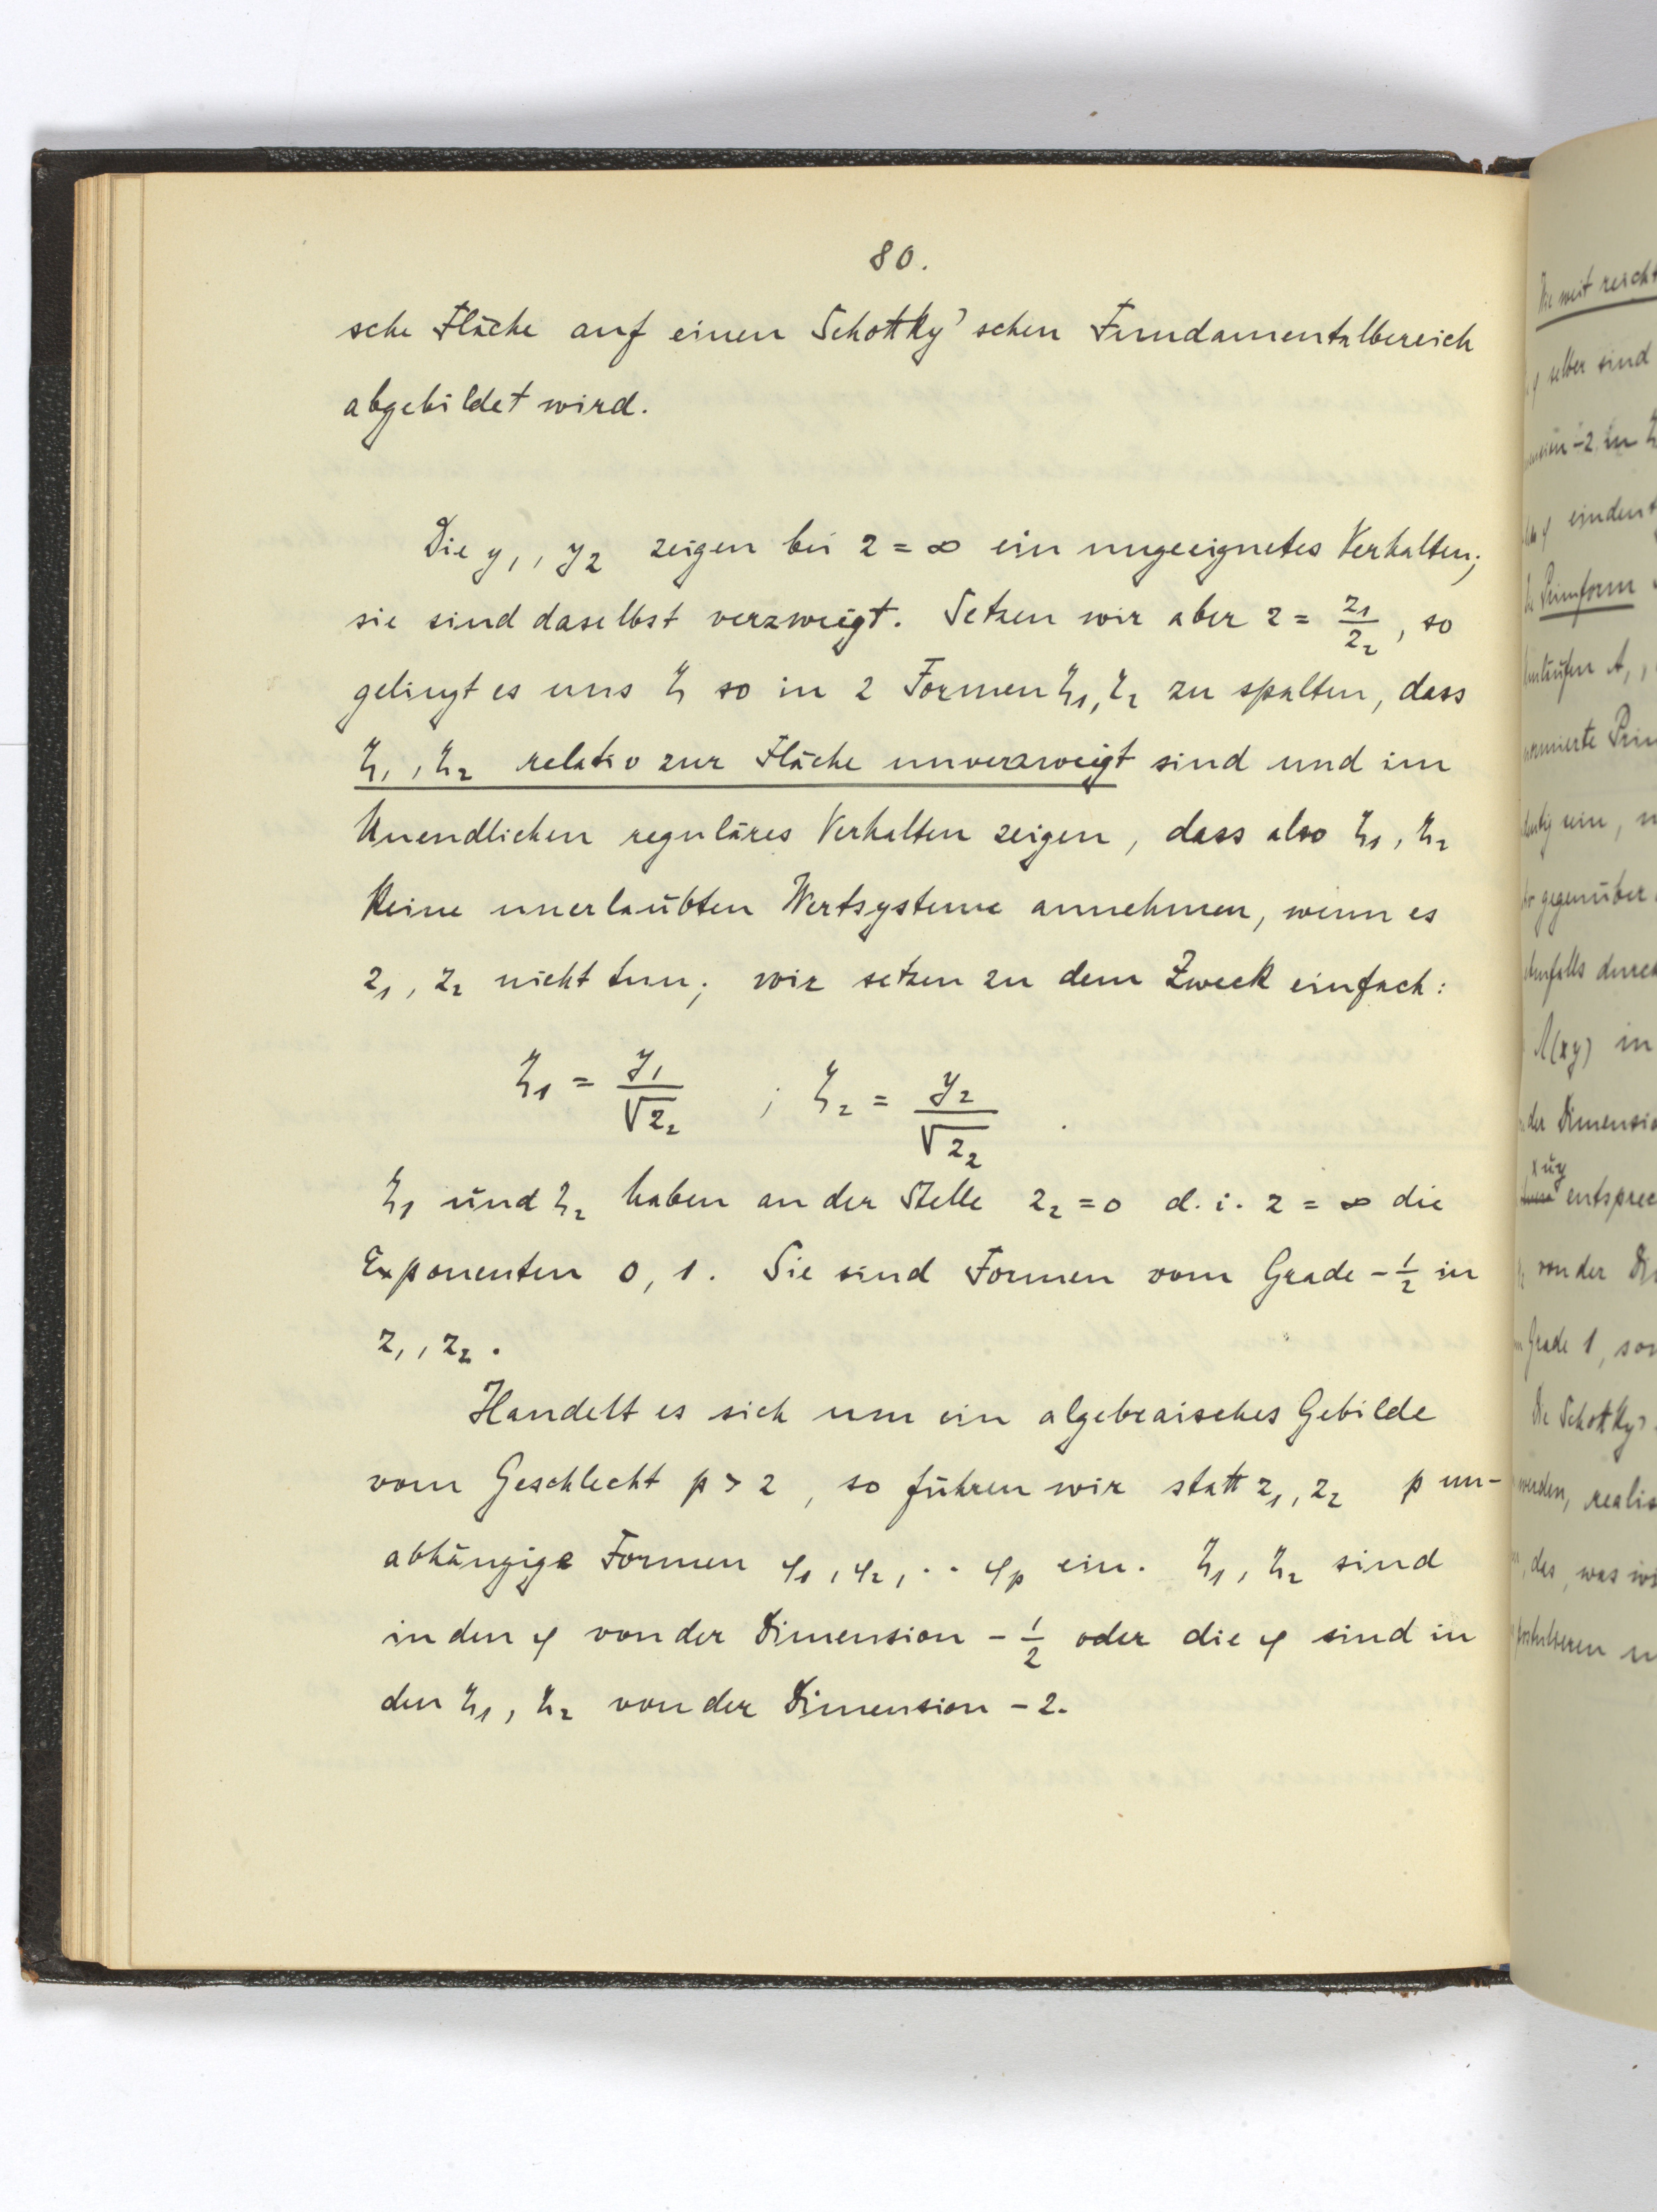 80.
sche Fläche auf einen Schottky'schen Fundamentalbereich
abgebildet wird.
Die y₁, y₂ zeigen bei z = ∞ ein ungeeignetes Verhalten;
sie sind daselbst verzweigt. Setzen wir aber z = z₁/z₂, so
gelingt es uns ζ so in 2 Formen ζ₁, ζ₂ zu spalten, dass
ζ₁, ζ₂ relativ zur Fläche unverzweigt sind und im
Unendlichen reguläres Verhalten zeigen, dass also ζ₁, ζ₂
keine unerlaubten Wertsysteme annehmen, wenn es
z₁, z₂ nicht tun; wir setzen zu dem Zweck einfach:
ζ₁ = y₁/√z₂ ; ζ₂ = y₂/√z₂ .
ζ₁ und ζ₂ haben an der Stelle z₂ = 0 d. i. z = ∞ die
Exponenten 0, 1. Sie sind Formen vom Grade -1/2 in
z₁, z₂.
Handelt es sich um ein algebraisches Gebilde
vom Geschlecht p > 2, so führen wir statt z₁, z₂ p un-
abhängige Formen φ₁, φ₂, .. φₚ ein. ζ₁, ζ₂ sind
in den φ von der Dimension -1/2 oder die φ sind in
den ζ₁, ζ₂ von der Dimension -2.
Die weit reicht
selber sind
-2 in ζ
φ eindeut
Primform
A₁,
Prim
ein,
gegenüber
durch
Λ(xy) in
der Dimensio
x, y
entsprec
von der Di
Grade 1, so
Die Schottky'
werden, realis
das, was wi
postulieren